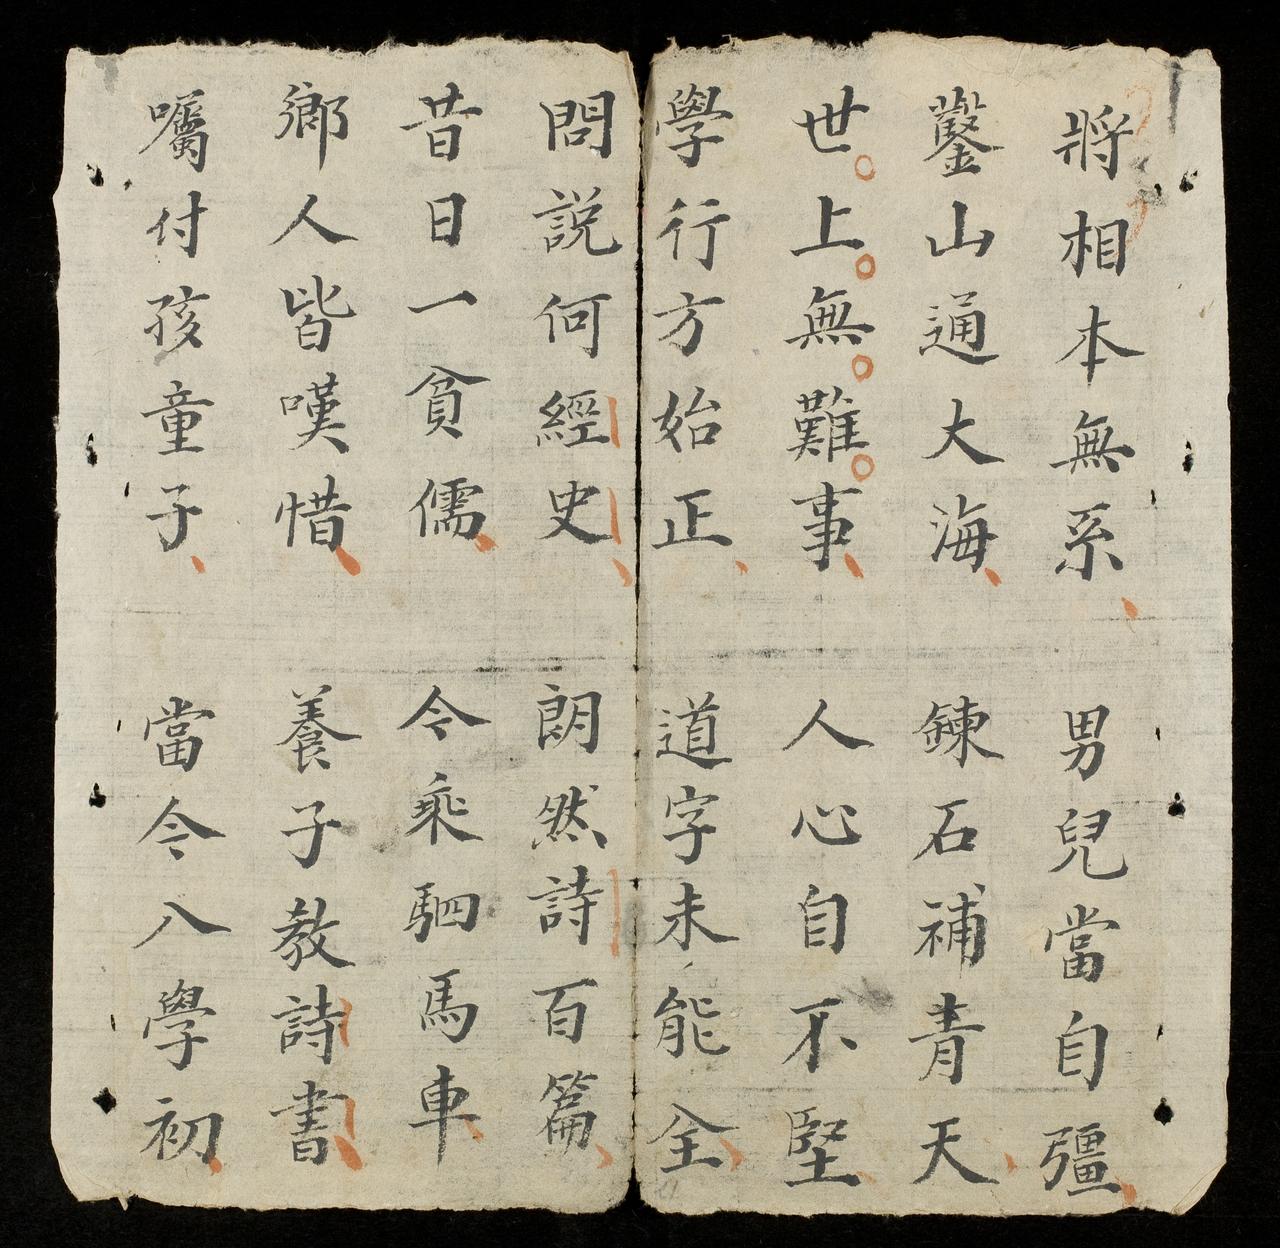 將相本無系 男兒當自彊
鑿山通大海 鍊石補青天
世上無難事 人心自不堅
學行方始正 道字未能全
問說何經史 朗然詩百篇
昔日一貧儒 今乘駟馬車
鄉人皆嘆惜 養子教詩書
囑付孩童子 當今入學初